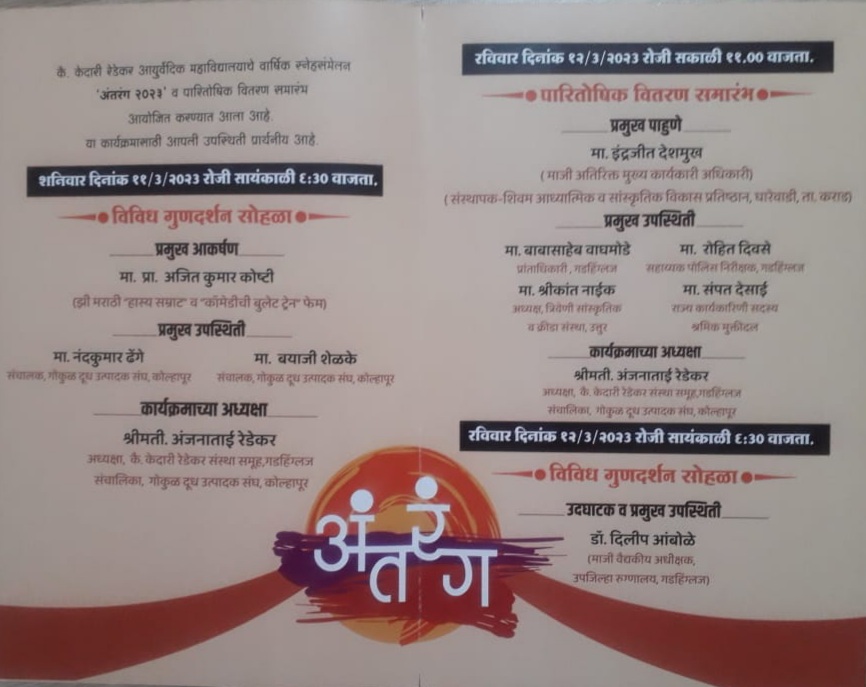 कै. केदारी रेडेकर आयुर्वेदिक महाविद्यालयाचे वार्षिक स्नेहसंमेलन
'अंतरंग २०२३' व पारितोषिक वितरण समारंभ
आयोजित करण्यात आला आहे.
या कार्यक्रमासाठी आपली उपस्थिती प्रार्थनीय आहे.
शनिवार दिनांक ११/३/२०२३ रोजी सायंकाळी ६:३० वाजता.
विविध गुणदर्शन सोहळा
प्रमुख आकर्षण
मा. प्रा. अजित कुमार कोष्टी
(झी मराठी "हास्य सम्राट" व "कॉमेडीची बुलेट ट्रेन" फेम)
प्रमुख उपस्थिती
मा. नंदकुमार ढेंगे
संचालक, गोकुळ दूध उत्पादक संघ, कोल्हापूर
मा. बयाजी शेळके
संचालक, गोकुळ दूध उत्पादक संघ, कोल्हापूर
कार्यक्रमाच्या अध्यक्षा
श्रीमती. अंजनाताई रेडेकर
अध्यक्षा, कै. केदारी रेडेकर संस्था समूह,गडहिंग्लज
संचालिका, गोकुळ दूध उत्पादक संघ, कोल्हापूर
अंतरंग
रविवार दिनांक १२/3/२०२3 रोजी सकाळी ११.00 वाजता.
पारितोषिक वितरण समारंभ
प्रमुख पाहुणे
मा. इंद्रजीत देशमुख
( माजी अतिरिक्त मुख्य कार्यकारी अधिकारी)
( संस्थापक-शिवम आध्यात्मिक व सांस्कृतिक विकास प्रतिष्ठान, घारेवाडी, ता. कराड)
प्रमुख उपस्थिती
मा. बाबासाहेब वाघमोडे
प्रांताधिकारी , गडहिंग्लज
मा. रोहित दिवसे
सहाय्यक पोलिस निरीक्षक, गडहिंग्लज
मा. श्रीकांत नाईक
अध्यक्ष, त्रिवेणी सांस्कृतिक
व क्रीडा संस्था, उत्तुर
मा. संपत देसाई
राज्य कार्यकारिणी सदस्य
श्रमिक मुक्तीदल
कार्यक्रमाच्या अध्यक्षा
श्रीमती. अंजनाताई रेडेकर
अध्यक्षा, कै. केदारी रेडेकर संस्था समूह,गडहिंग्लज
संचालिका, गोकुळ दूध उत्पादक संघ, कोल्हापूर
रविवार दिनांक १२/3/२०२3 रोजी सायंकाळी ६:३० वाजता.
विविध गुणदर्शन सोहळा
उदघाटक व प्रमुख उपस्थिती
डॉ. दिलीप आंबोळे
(माजी वैद्यकीय अधीक्षक,
उपजिल्हा रुग्णालय, गडहिंग्लज)